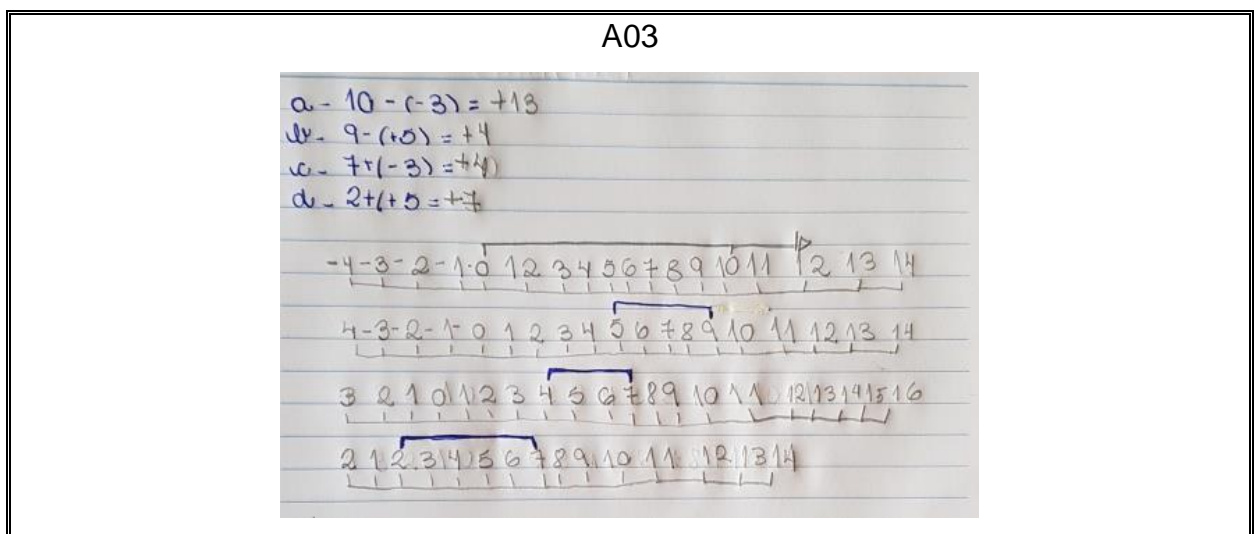 A03
a - 10 - (-3) = +13
b - 9 - (+5) = +4
c - 7+(-3) = +4
d - 2+(+5 = +7
-4 -3 - 2 - 1 - 0 1 2 3 4 5 6 7 8 9 10 11 12 13 14
4 - 3 - 2 - 1 - 0 1 2 3 4 5 6 7 8 9 10 11 12 13 14
3 2 1 0 1 2 3 4 5 6 7 8 9 10 11 12 13 14 15 16
2 1 2 3 4 5 6 7 8 9 10 11 12 13 14